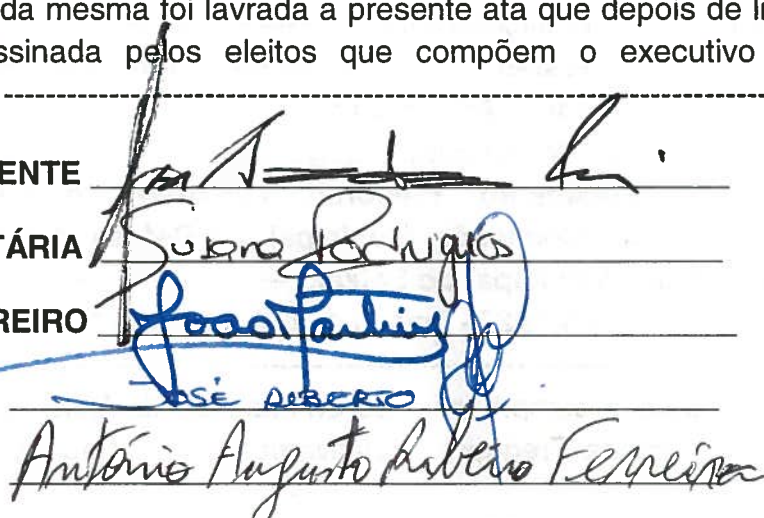 da mesma foi lavrada a presente ata que depois de
ssinada pelos eleitos que compõem o executivo
ENTE
TÁRIA Susana Rodrigues
REIRO João Martins
JOSÉ ALBERTO
António Augusto Ribeiro Ferreira